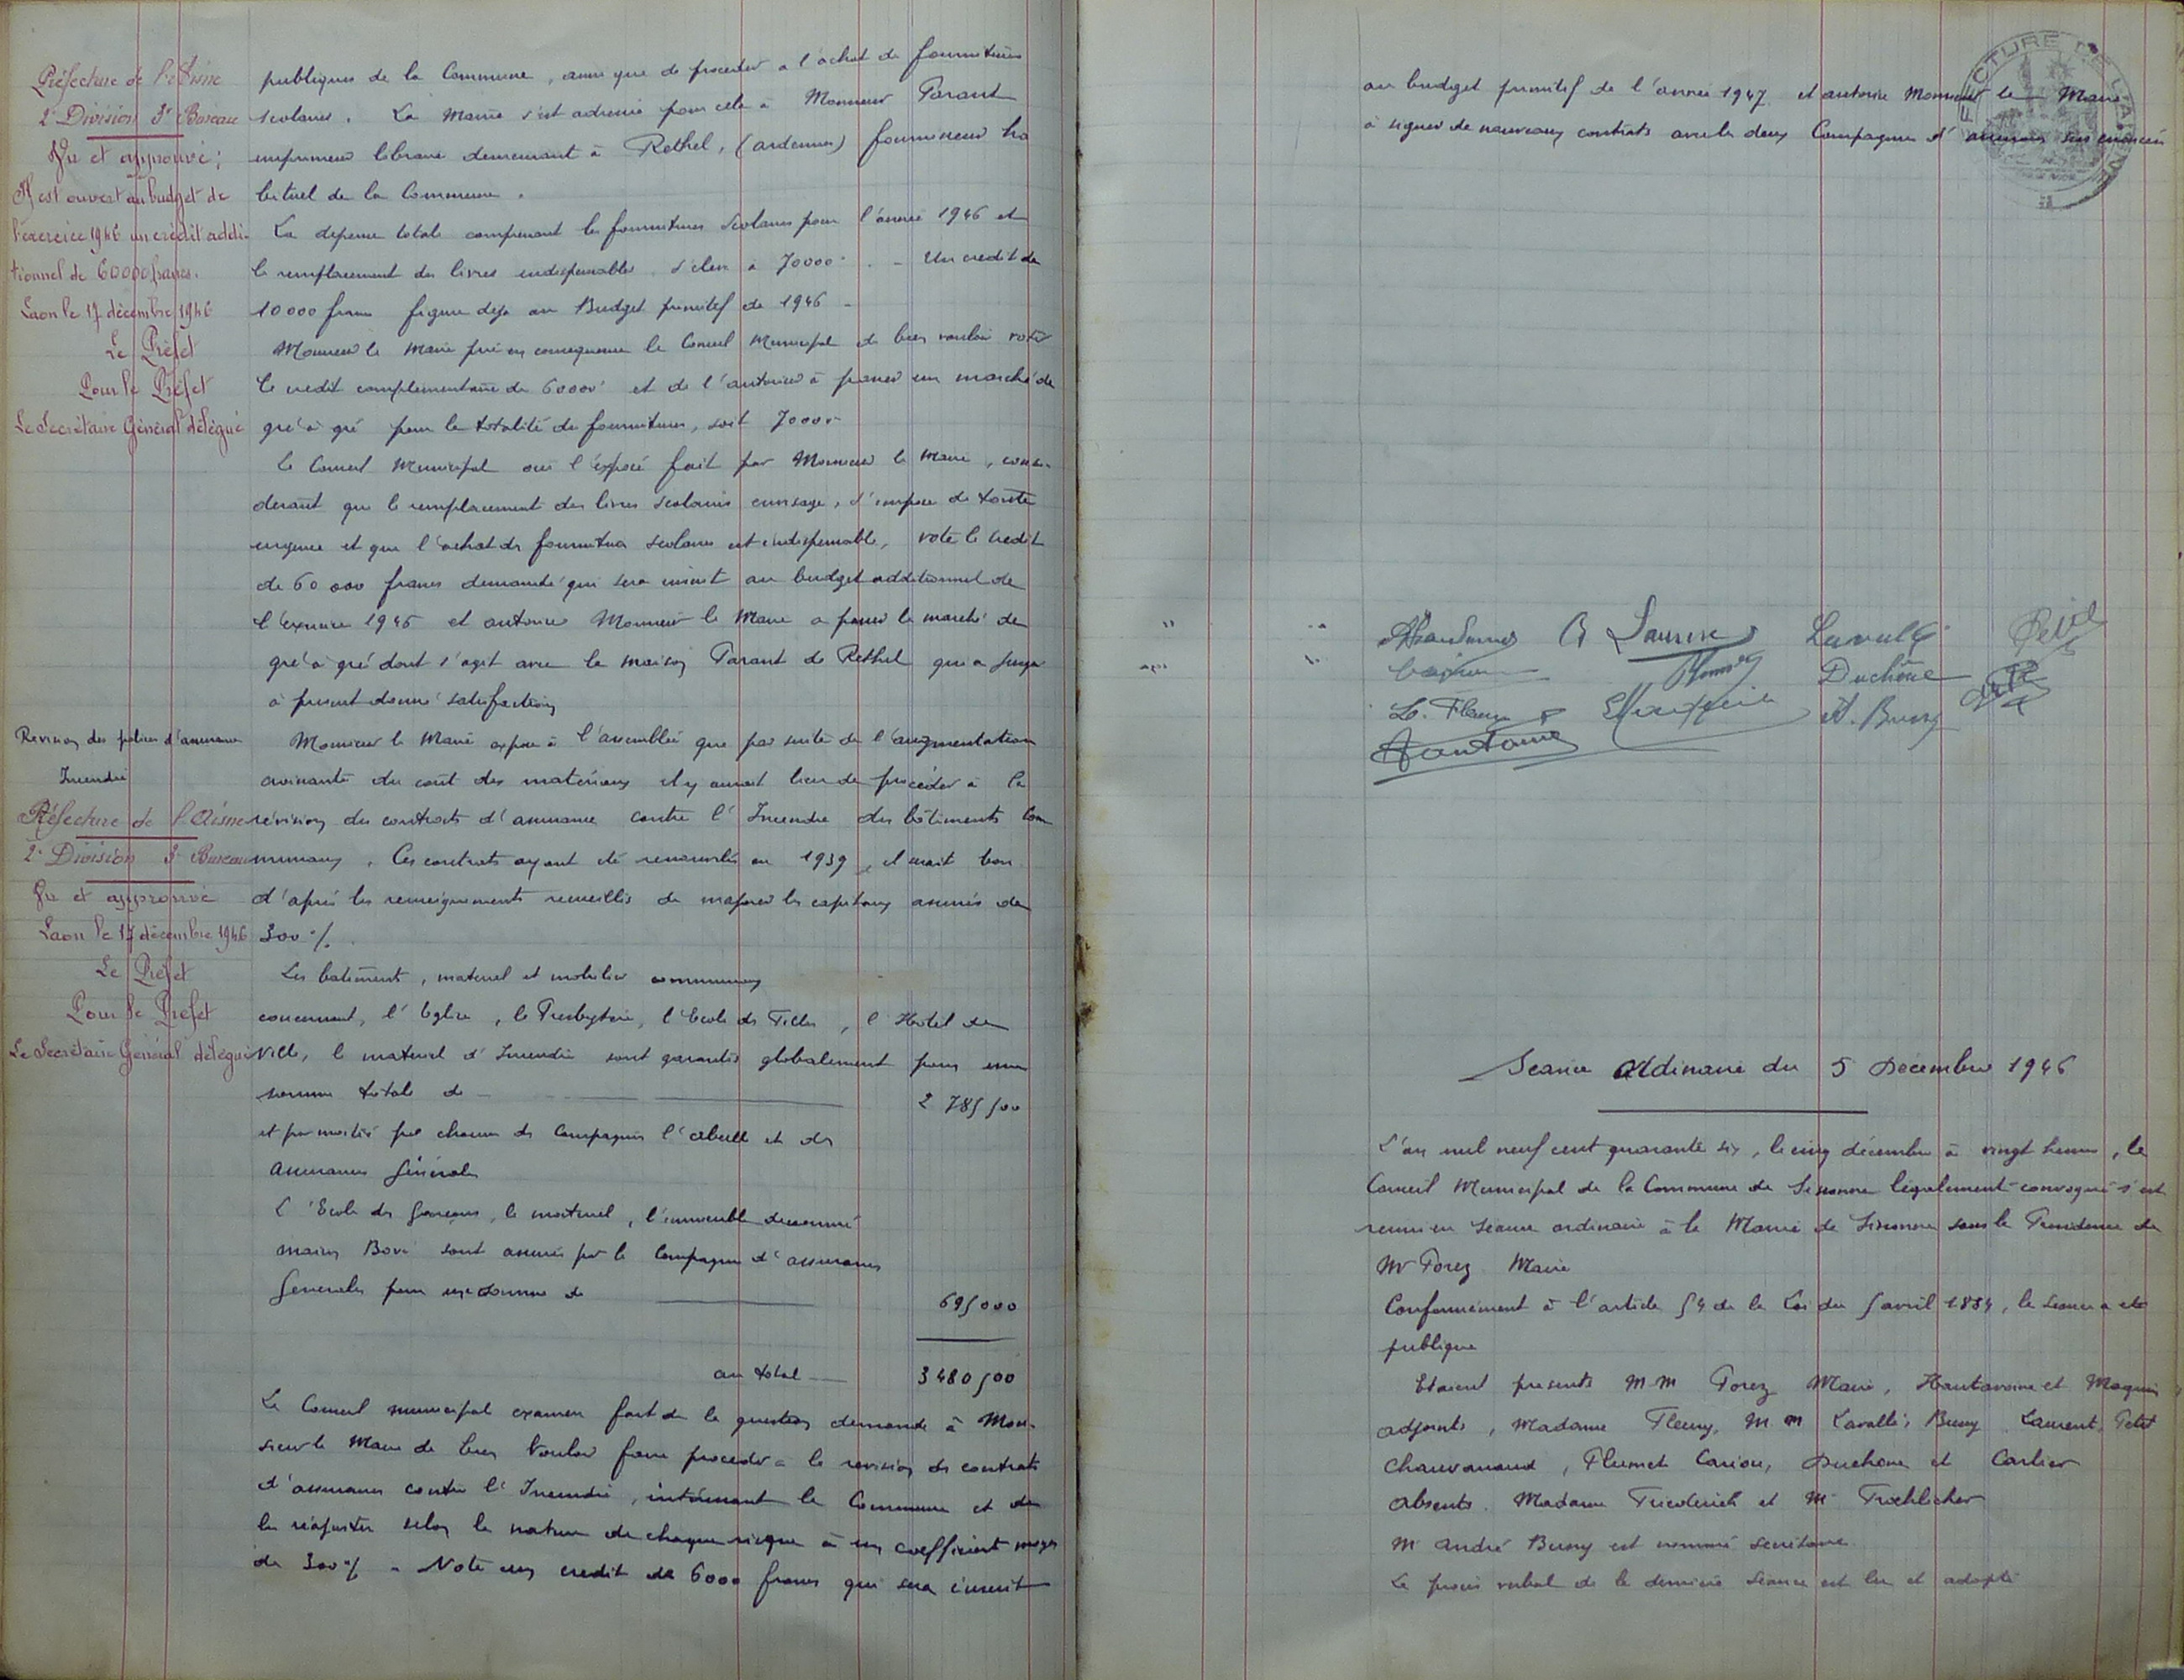 Préfecture de l'Aisne
2e Division 3e Bureau
Vu et approuvé ;
Il est ouvert au budget de
l'exercice 1946 un crédit addi-
tionnel de 60000 francs.
Laon le 17 décembre 1946
Le Préfet
Pour le Préfet
Le Secrétaire Général délégué
publiques de la Commune, ainsi que de proceder a l'achat de fournitures
scolaires. La Mairie s'est adressée pour cela à Monsieur Parant
imprimeur libraire demeurant à Rethel, (ardennes) fournisseur ha
bituel de la Commune.
La depense totale comprenant les fournitures scolaires pour l'année 1946 et
le remplacement des livres indispensables s'eleve à 70000 - Un credit de
10000 francs figure deja au Budget primitif de 1946 -
Monsieur le Maire prie en consequence le Conseil Municipal de bien vouloir voter
le credit complementaire de 60000 et de l'autoriser à passer un marché de
gré à gré pour la totalité des fournitures, soit 70000
Le Conseil Municipal oui l'exposé fait par Monsieur le Maire, consi-
derant que le remplacement des livres scolaires envisage, s'impose de toute
urgence et que l'achat de fournitures scolaires est indispensable, vote le credit
de 60 000 francs demandé qui sera inscrit au budget additionnel de
l'exercice 1946 et autorise Monsieur le Maire a passer le marché de
gré à gré dont s'agit avec la maison Parant de Rethel qui a jusqu'
à present donné satisfaction
Revision des polices d'assurance
Incendie
Préfecture de l'Aisne
2e Division 3e Bureau
Vu et approuvé
Laon le 17 décembre 1946
Le Préfet
Pour le Préfet
Le Secrétaire Général délégué
Monsieur le Maire expose à l'assemblée que par suite de l'augmentation
croissante du coût des matériaux il y aurait lieu de procéder à la
révision des contrats d'assurance contre l'Incendie des bâtiments com
munaux. Ces contrats ayant été renouvelés en 1939, il serait bon
d'après les renseignements recueillis de majorer les capitaux assurés de
300 %.
Les batiments, materiel et mobilier communaux
concernant, l'Eglise, le Presbytère, l'Ecole de Filles, l'Hotel de
Ville, le materiel d'Incendie sont garantis globalement pour une
somme totale de - 2 785 500
et par moitié par chacune des Compagnies l'abeille et des
assurances Générales
L'Ecole des Garçons, le materiel, l'immeuble denommé
maison Bové sont assurés par la Compagnie d'assurances
Generales pour une somme de 695000
au total 3 480 500
Le Conseil municipal examen fait de la question demande à Mon-
sieur le Maire de bien Vouloir faire proceder a la revision des contrats
d'assurances contre l'Incendie, intéressant la Commune et de
les réajuster selon la nature de chaque risque à un coefficient moyen
de 300 % - Vote un credit de 6000 francs qui sera inscrit
au budget primitif de l'année 1947 et autorise Monsieur le Maire
à signer de nouveaux contrats avec les deux Compagnies d'assurances
PRÉFECTURE DE L'AISNE
G Laurent Lavallé Petit
Duchêne
L. Fleury A. Buny
Hautavoine
Seance Ordinaire du 5 Décembre 1946
L'an mil neuf cent quarante six, le cinq décembre à vingt heures, le
Conseil Municipal de la Commune de Sissonne légalement convoqué s'est
reuni en Seance ordinaire à la Mairie de Sissonne sous la Presidence de
Mr Porez Maire
Conformement à l'article 54 de la Loi du 5 avril 1884, la seance a été
publique
Etaient presents M M Porez Maire, Hautavoine et Maquin
adjoints, Madame Fleury, M M Lavallé, Buny Laurent, Petit
Chauvanaud, Plumet Cariou, Duchene et Carlier
absents. Madame Friederich et Mr Froehlicher
Mr André Buny est nommé secrétaire
Le procès verbal de la dernière séance est lu et adopté